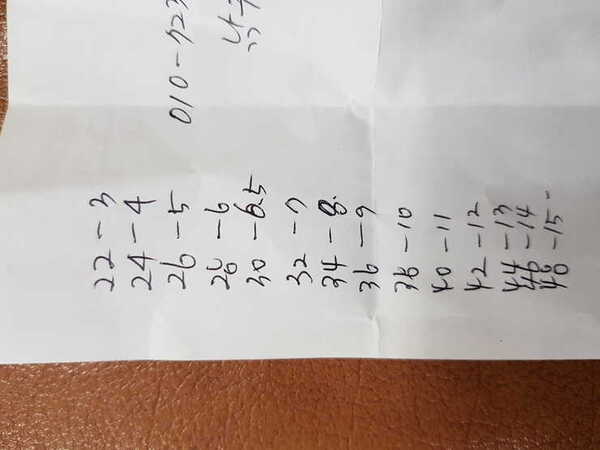 22 - 3
24 - 4
26 - 5
28 - 6
30 - 6.5
32 - 7
34 - 8.
36 - 9
38 - 10
40 - 11
42 - 12
44 - 13
46 - 14
48 - 15
010-723